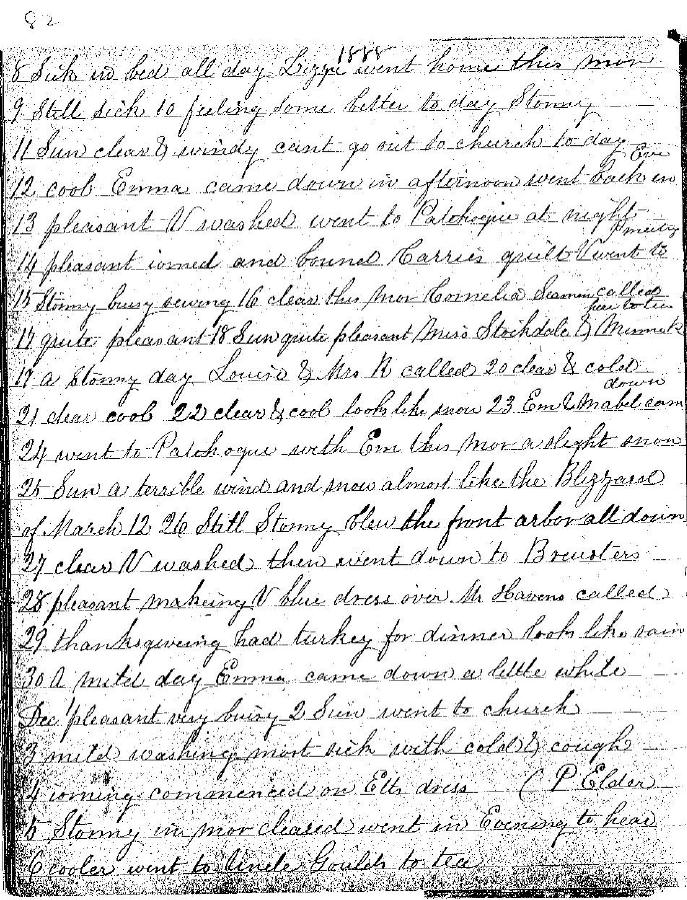 82
1888
8 Sick in bed all day Lizzie went home this mor
9 Still sick 10 feeling some better to day Stormy
11 Sun clear & windy cant go out to church to day
Eve
12 cool Emma came down in afternoon went back in
13 pleasant V washed went to Patchogue at night
P meeting
14 pleasant ironed and bound Carries quilt V went to
15 Stormy busy sewing 16 clear this mor Cornelia Seamen called
here to tea
17 quite pleasant 18 Sun quite pleasant Miss Stockdale & Minnie
19 a Stormy day Louisa & Mrs R called 20 clear & cold
down
21 clear cool 22 clear & cool looks like snow 23 Em & Mabel cam
24 went to Patchogue with Em this mor a slight snow
25 Sun a terrible wind and snow almost like the Blizzard
of March 12 26 Still Stormy blew the front arbor all down
27 clear V washed then went down to Brewsters
28 pleasant makeing V blue dress over Mr Havens called
29 thanksgiveing had turkey for dinner looks like rain
30 A mild day Emma came down a little while
Dec 1 pleasant very busy 2 Sun went to church
3 mild washing most sick with cold & cough
4 ironing commenced on Etts dress ( P Elder
5 Stormy in mor cleared went in Evening to hear
6 cooler went to Uncle Goulds to tea